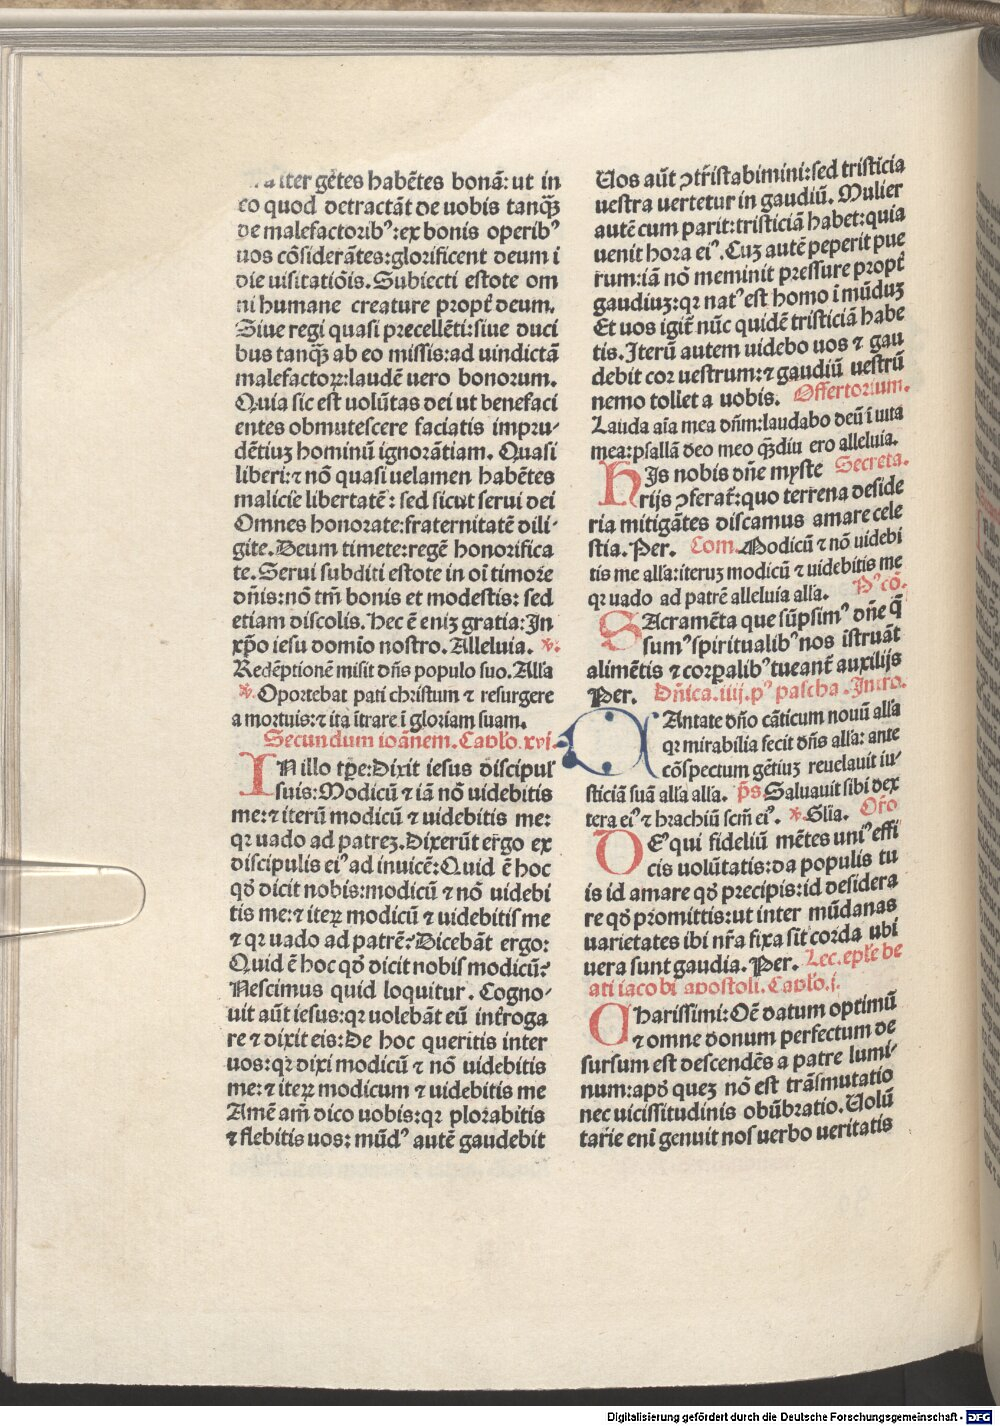 iter gētes habētes bonā: ut in
eo quod detractāt de uobis tanqȝ
de malefactoribꝰ: ex bonis operibꝰ
uos cōsiderātes: glorificent deum i
die uisitatiōis. Subiecti estote om
ni humane creature propt̄ deum.
Siue regi quasi precellēti: siue duci
bus tanqȝ̄ ab eo missis: ad uindictā
malefactoꝝ: laudē uero bonorum.
Quia sic est uolūtas dei ut benefaci
entes obmutescere faciatis impru⸗
dētiuȝ hominū ignorātiam. Quasi
liberi: ⁊ nō quasi uelamen habētes
malicie libertatē: sed sicut serui dei
Omnes honorate: fraternitatē dili⸗
gite. Deum timete: regē honorifica
te. Serui subditi estote in oī timore
dn̄is: nō tm̄ bonis et modestis: sed
etiam discolis. Hec ē eniȝ gratia: In
xp̄o iesu domio nostro. Alleluia. ℣.
Redēptionē misit dn̄s populo suo. Alla
℣. Oportebat pati christum ⁊ resurgere
a mortuis: ⁊ ita ītrare ī gloriam suam.
Secundum ioānem. Capl̓o. xvi.
IN illo tp̄e: Dixit iesus discipul̓
suis: Modicū ⁊ iā nō uidebitis
me: ⁊ iterū modicū ⁊ uidebitis me:
qꝛ uado ad patreȝ. Dixerūt ergo ex
discipulis eiꝰ ad inuicē: Quid ē hoc
qd̓ dicit nobis: modicū ⁊ nō uidebi
tis me: ⁊ iteꝝ modicū ⁊ uidebitis me
⁊ qꝛ uado ad patrē? Dicebāt ergo:
Quid ē hoc qd̓ dicit nobis modicū?
Nescimus quid loquitur. Cogno⸗
uit aūt iesus: qꝛ uolebāt eū int̓roga
re ⁊ dixit eis: De hoc queritis inter
uos: qꝛ dixi modicū ⁊ nō uidebitis
me: ⁊ iteꝝ modicum ⁊ uidebitis me
Amē am̄ dico uobis: qꝛ plorabitis
⁊ flebitis uos: mūdꝰ autē gaudebit
Uos aūt ꝯt̓ristabimini: sed tristicia
uestra uertetur in gaudiū. Mulier
autē cum parit: tristiciā habet: quia
uenit hora eiꝰ. Cuȝ autē peperit pue
rum: iā nō meminit pressure propt̄
gaudiuȝ: qꝛ natꝰ est homo i mūduȝ
Et uos igit̄ nūc quidē tristiciā habe
tis. Iterū autem uidebo uos ⁊ gau
debit cor uestrum: ⁊ gaudiū uestrū
nemo tollet a uobis. Offertorium.
Lauda aīa mea dn̄m: laudabo deū ī uita
mea: psallā deo meo qȝ̄diu ero alleluia.
HIs nobis dn̄e myste Secreta.
rijs ꝯferat̄: quo terrena deside
ria mitigātes discamus amare cele
stia. Per. Com. Modicū ⁊ nō uidebi
tis me all̓a: iteruȝ modicū ⁊ uidebitis me
qꝛ uado ad patrē alleluia all̓a. Pꝰ cō.
SAcramēta que sūpsimꝰ dn̄e q̄
sumꝰ spiritualibꝰ nos īstruāt
alimētis ⁊ corꝑalibꝰ tueant̄ auxilijs
Per. Dn̄ica. iiij. pꝰ pascha. Intro.
CAntate dn̄o cāticum nouū all̓a
qꝛ mirabilia fecit dn̄s all̓a: ante
cōspectum gētiuȝ reuelauit iu⸗
sticiā suā all̓a all̓a. p̄s. Saluauit sibi dex
tera eiꝰ ⁊ brachiū scm̄ eiꝰ. ℣. Gl̓ia. Or̄o
DE' qui fideliū mētes uniꝰ effi
cis uolūtatis: da populis tu
is id amare qd̓ precipis: id desidera
re qd̓ promittis: ut inter mūdanas
uarietates ibi nr̄a fixa sit corda ubi
uera sunt gaudia. Per. Lec. epl̓e be
ati iacobi apostoli. Capl̓o. i.
CHarissimi: Oē datum optimū
⁊ omne donum perfectum de
sursum est descendēs a patre lumi⸗
num: apd̓ queȝ nō est trāsmutatio
nec uicissitudinis obūbratio. Uolū
tarie eni genuit nos uerbo ueritatis
Digitalisierung gefördert durch die Deutsche Forschungsgemeinschaft - DFG